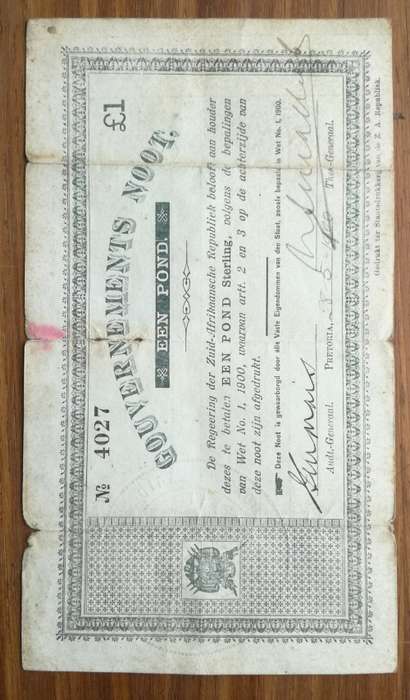 № 4027
£1
GOUVERNEMENTS NOOT.
EEN POND
De Regeering der Zuid-Afrikaansche Republiek belooft aan houder
dezes te betalen EEN POND Sterling, volgens de bepalingen
van Wet No. 1, 1900, waarvan artt. 2 en 3 op de achterzijde van
deze noot zijn afgedrukt.
Deze Noot is gewaarborgd door alle Vaste Eigendommen van den Staat, zooals bepaald in Wet No. 1, 1900.
Audt.-Generaal. PRETORIA, Thes.-Generaal.
Gedrukt ter Staatsdrukkerij van de Z. A. Republiek.